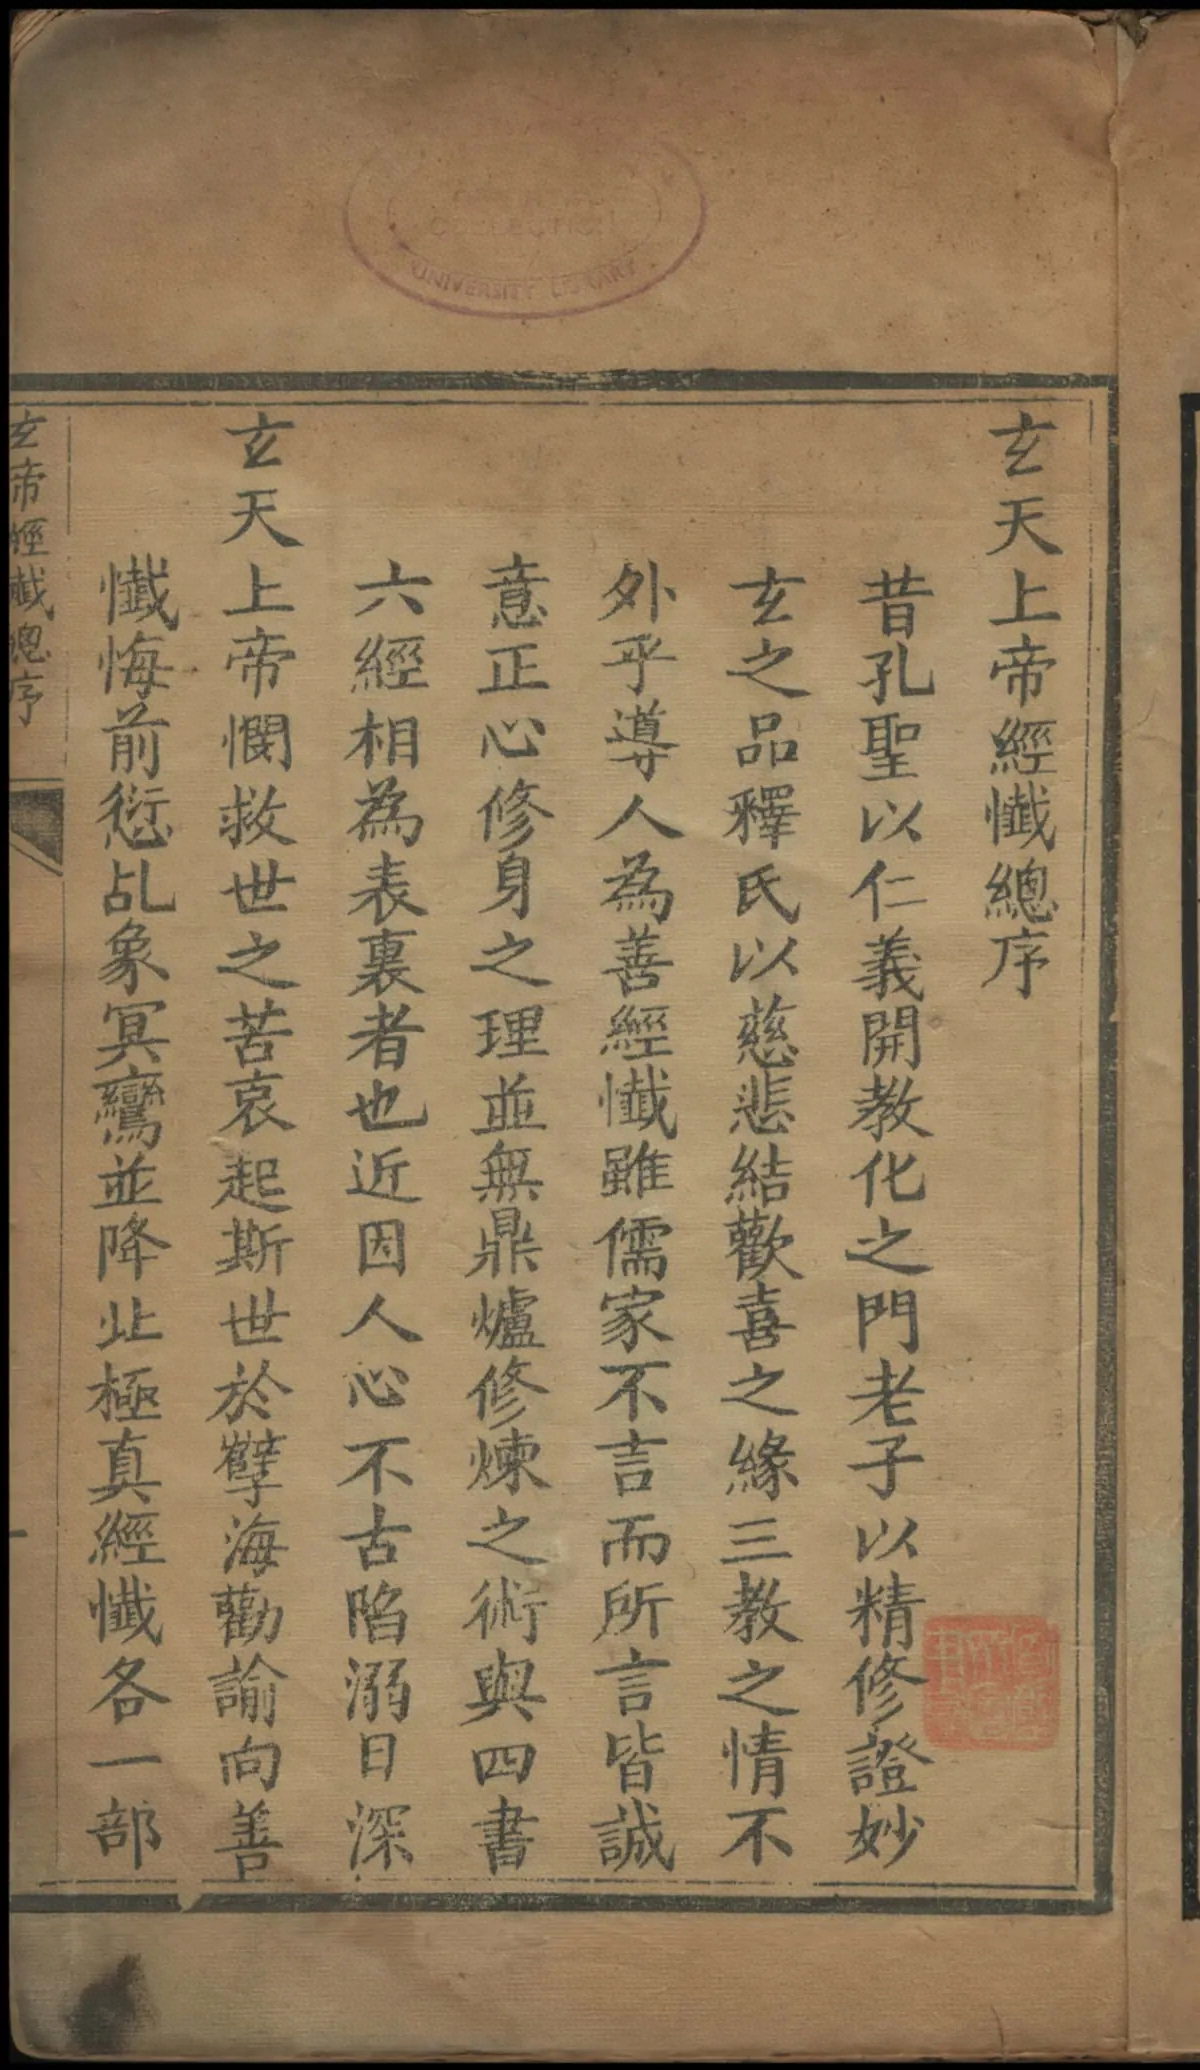 玄天上帝經懺總序
昔孔聖以仁義開教化之門老子以精修證妙
玄之品釋氏以慈悲結歡喜之緣三教之情不
外乎導人為善經懺雖儒家不言而所言皆誠
意正心修身之理並無鼎爐修煉之術與四書
六經相為表裏者也近因人心不古陷溺日深
玄天上帝憫救世之苦哀起斯世於孽海勸諭向善
懺悔前愆乩象冥鸞並降北極真經懺各一部
玄帝經懺總序
COLLECTION
UNIVERSITY LIBRARY